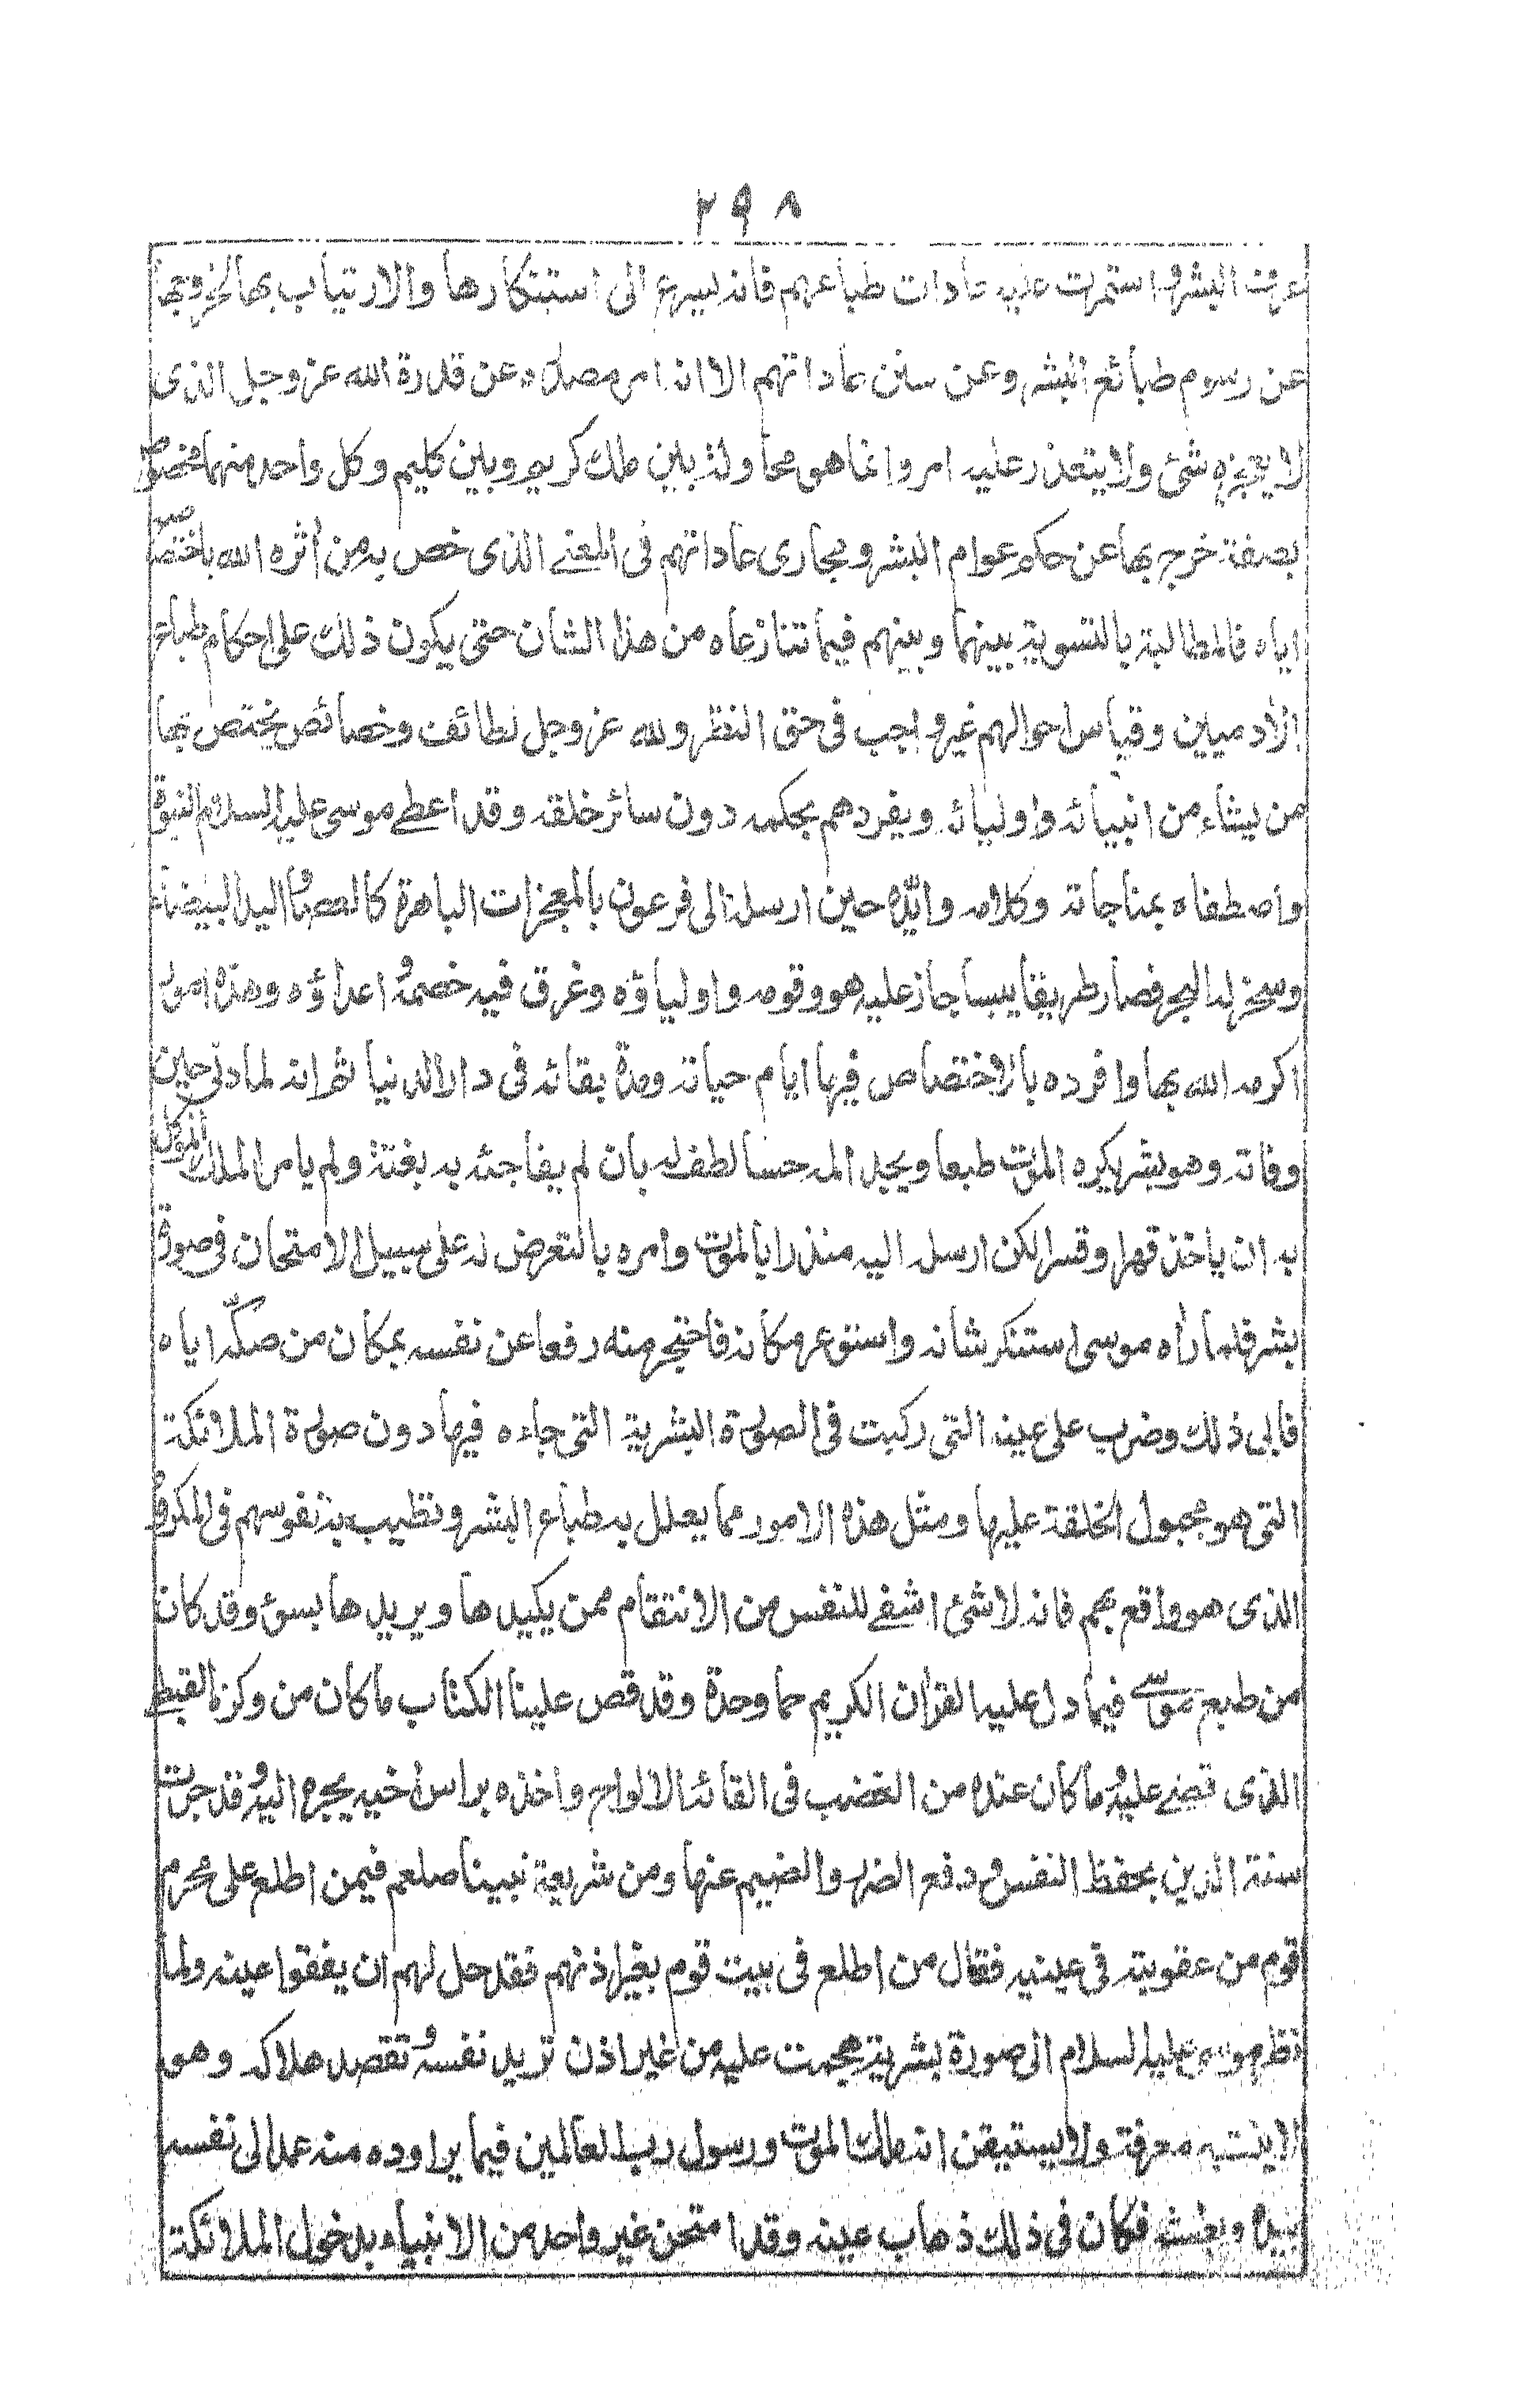 ٢٩٨
عرف البشر واستمرت عليه عادات طباعهم فانه يسرع الى استنكارها والارتياب بها لخروجها
عن رسوم طبائع البشر وعن سنن عاداتهم الا انه امر مصدره عن قدرة الله عز وجل الذى
لا يعجزه شئ ولا يتعذر عليه امر وانما هو محاولة بين ملك كريم وبين كليم وكل واحد منهما مخصوص
بصفة خرج بها عن حكم عوام البشر ومجارى عاداتهم فى المعنے الذى خص به من أثره الله باختصاصه
اياه فالمطالبة بالتسوية بينهما وبينهم فيما تنازعاه من هذا الشان حتى يكون ذلك على احكام طباع
الأدميين وقياس احوالهم غير واجب فى حق النظر ولله عز وجل لطائف وخصائص يختص بها
من يشاء من انبيائه واوليائه ويفردهم بحكمه دون سائر خلقه وقد اعطے موسى عليه السلام النبوة
واصطفاه بمناجاته وكلامه وايّده حين ارسله الى فرعون بالمعجزات الباهرة كالعصا واليد البيضاء
وسخر له البحر فصار طريقا يبسا جاز عليه هو وقومه واولياؤه وغرق فيه خصمه واعداؤه وهذه امور
اكرمه الله بها وافرده بالاختصاص فيها ايام حياته ومدة بقائه فى دار الدنيا ثم انه لما دنى حين
وفاته وهو بشر يكره الموت طبعا ويجد المه حسا لطف له بان لم يفاجئه به بغتة ولم يامر الملك الموكل
به ان ياخذه قهرا وقسرا لكن ارسله اليه منذرا بالموت وامره بالتعرض له على سبيل الامتحان فى صورة
بشر فلما رأه موسى استنكر شانه واستوعر مكانه فاحتجر منه رفعا عن نفسه بمكان من صكّه اياه
فابى ذلك وضرب على عينه التى ركبت فى الصورة البشرية التى جاءه فيها دون صورة الملائكة
التى هو مجبول الخلقة عليها ومثل هذه الامور مما يعلل به طباع البشر وتطيب به نفوسهم فى المكروه
الذى هو واقع بهم فانه لا شئ اشفے للنفس من الانتقام ممن يكيدها ويريدها بسوء وقد كان
من طبع موسى فيما دل عليه القرأن الكريم حما وحدة وقد قص علينا الكتاب ما كان من وكزه القبطے
الذى قضے عليه وما كان عنده من الغضب فى القائه الالواح واخذه براس أخيه يجره اليه وقد جرت
سنة الدين بحفظ النفس ودفع الضرر والضيم عنها ومن شريعة نبينا صلعم فيمن اطلع على محرم
قوم من عقوبته فى عينيه فقال من اطلع فى بيت قوم بغير اذنهم فقد حل لهم ان يفقوا عينه ولما
نظر موسى عليه السلام الى صورة بشرية هجمت عليه من غير اذن تريد نفسه وتقصد هلاكه وهو
لا يثبته معرفة ولا يستيقن انه ملك الموت ورسول رب العالمين فيما يراوده منه عمد الى نفسه
بيده وبطشه فكان فى ذلك ذهاب عينه وقد امتحن غير واحد من الانبياء بدخول الملائكة